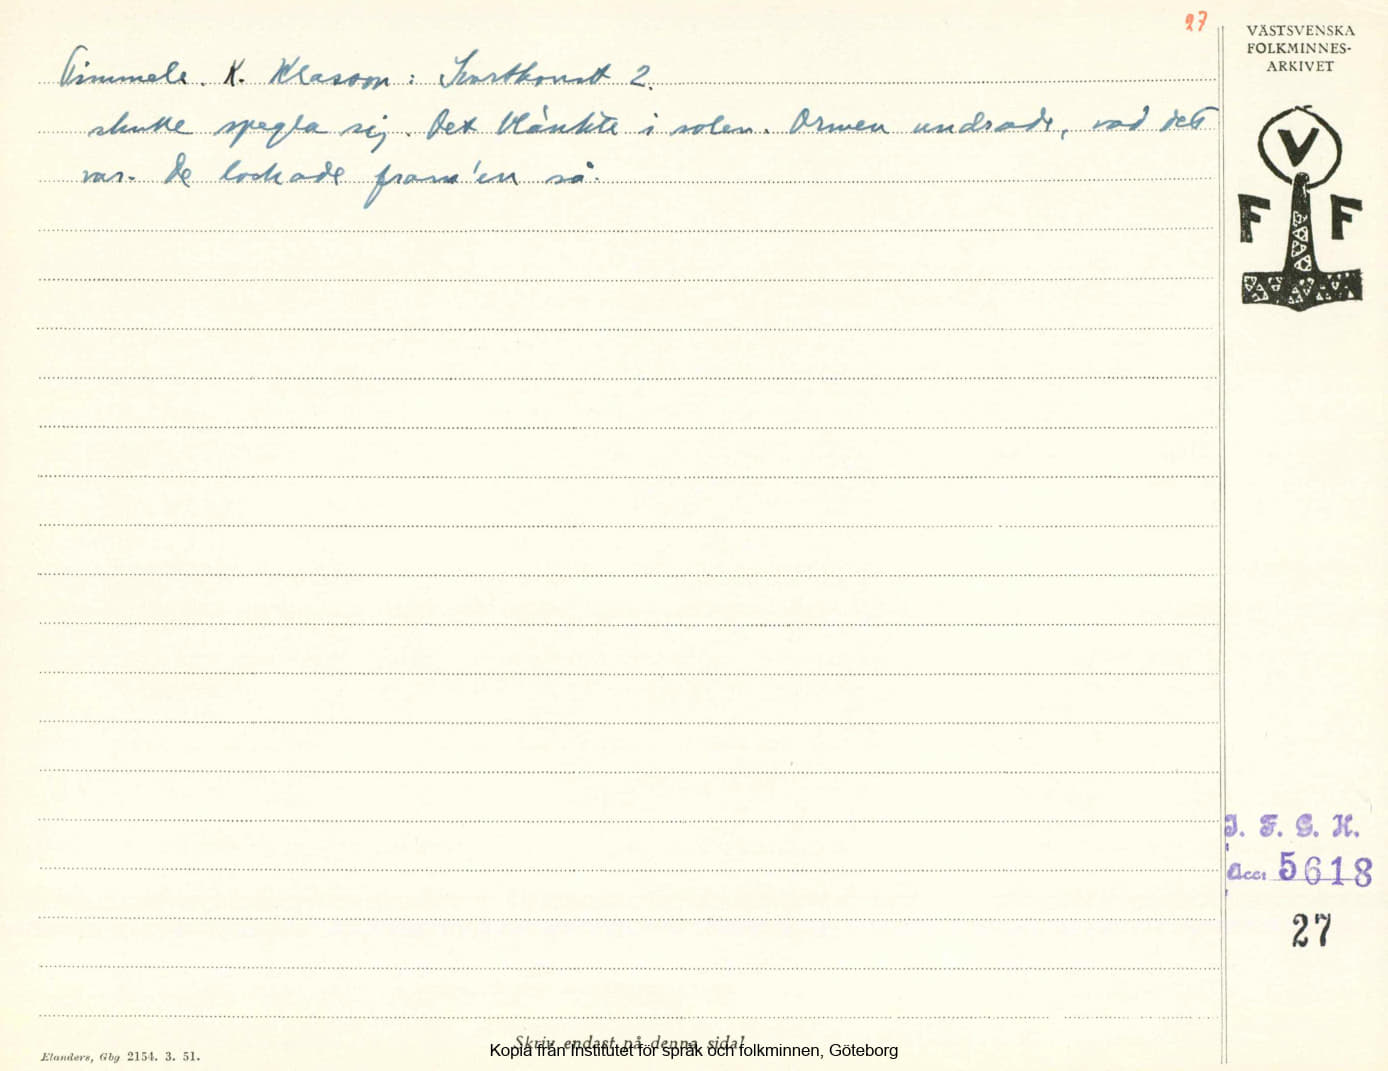 27
VÄSTSVENSKA
FOLKMINNES-
ARKIVET
V
F F
Timmele. K. Klasson: Svartkonst 2.
skulle spegla sig. Det blänkte i solen. Ormen undrade, vad det
var. De lockade fram'en så.
I. F. G. H.
Acc: 5618
27
Skriv endast på denna sida!
Kopia från Institutet för språk och folkminnen, Göteborg
Elanders, Gbg 2154. 3. 51.